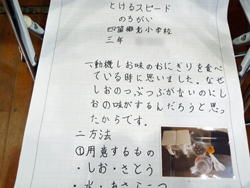 とけるスピード
のちがい
四箇郷北小学校
三年
一動機しお味のおにぎりを食べ
ている時に思いました。なぜ
しおのつぶつぶがないのにし
おの味がするんだろうと思っ
たからです。
二方法
①用意するもの
・しお・さとう
・水・あさらこっ